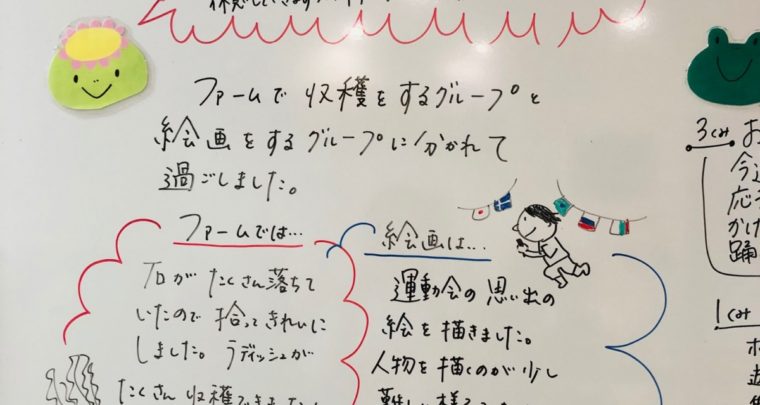 ファームで 収穫をするグループと
絵画をするグループに分かれて
過ごしました。
ファームでは…
たくさん落ちて
いたので 拾ってきれいに
しました。ラディッシュが
たくさん 収穫できました
絵画は…
運動会の思い出の
絵を描きました。
人物を描くのが少し
難しい様子
3くみ
お
今
応
かけ
踊
1くみ